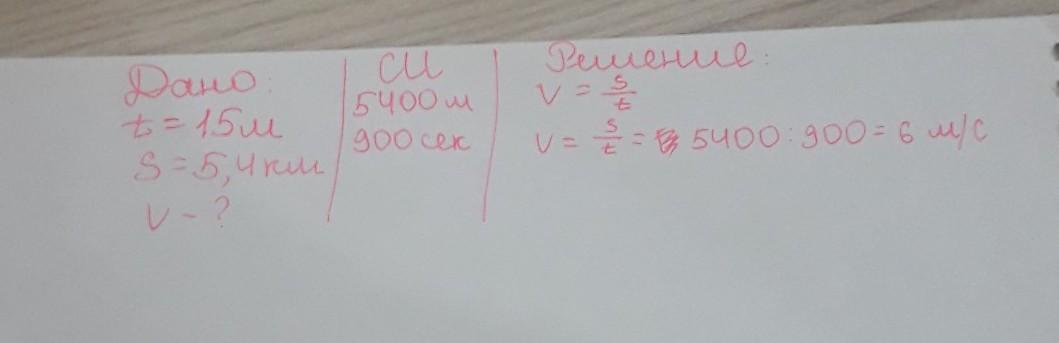 Дано:
t = 15м
S = 5,4 км
V - ?
СИ
5400 м
900 сек
Решение:
V = s/t
V = s/t = 5400 : 900 = 6 м/с